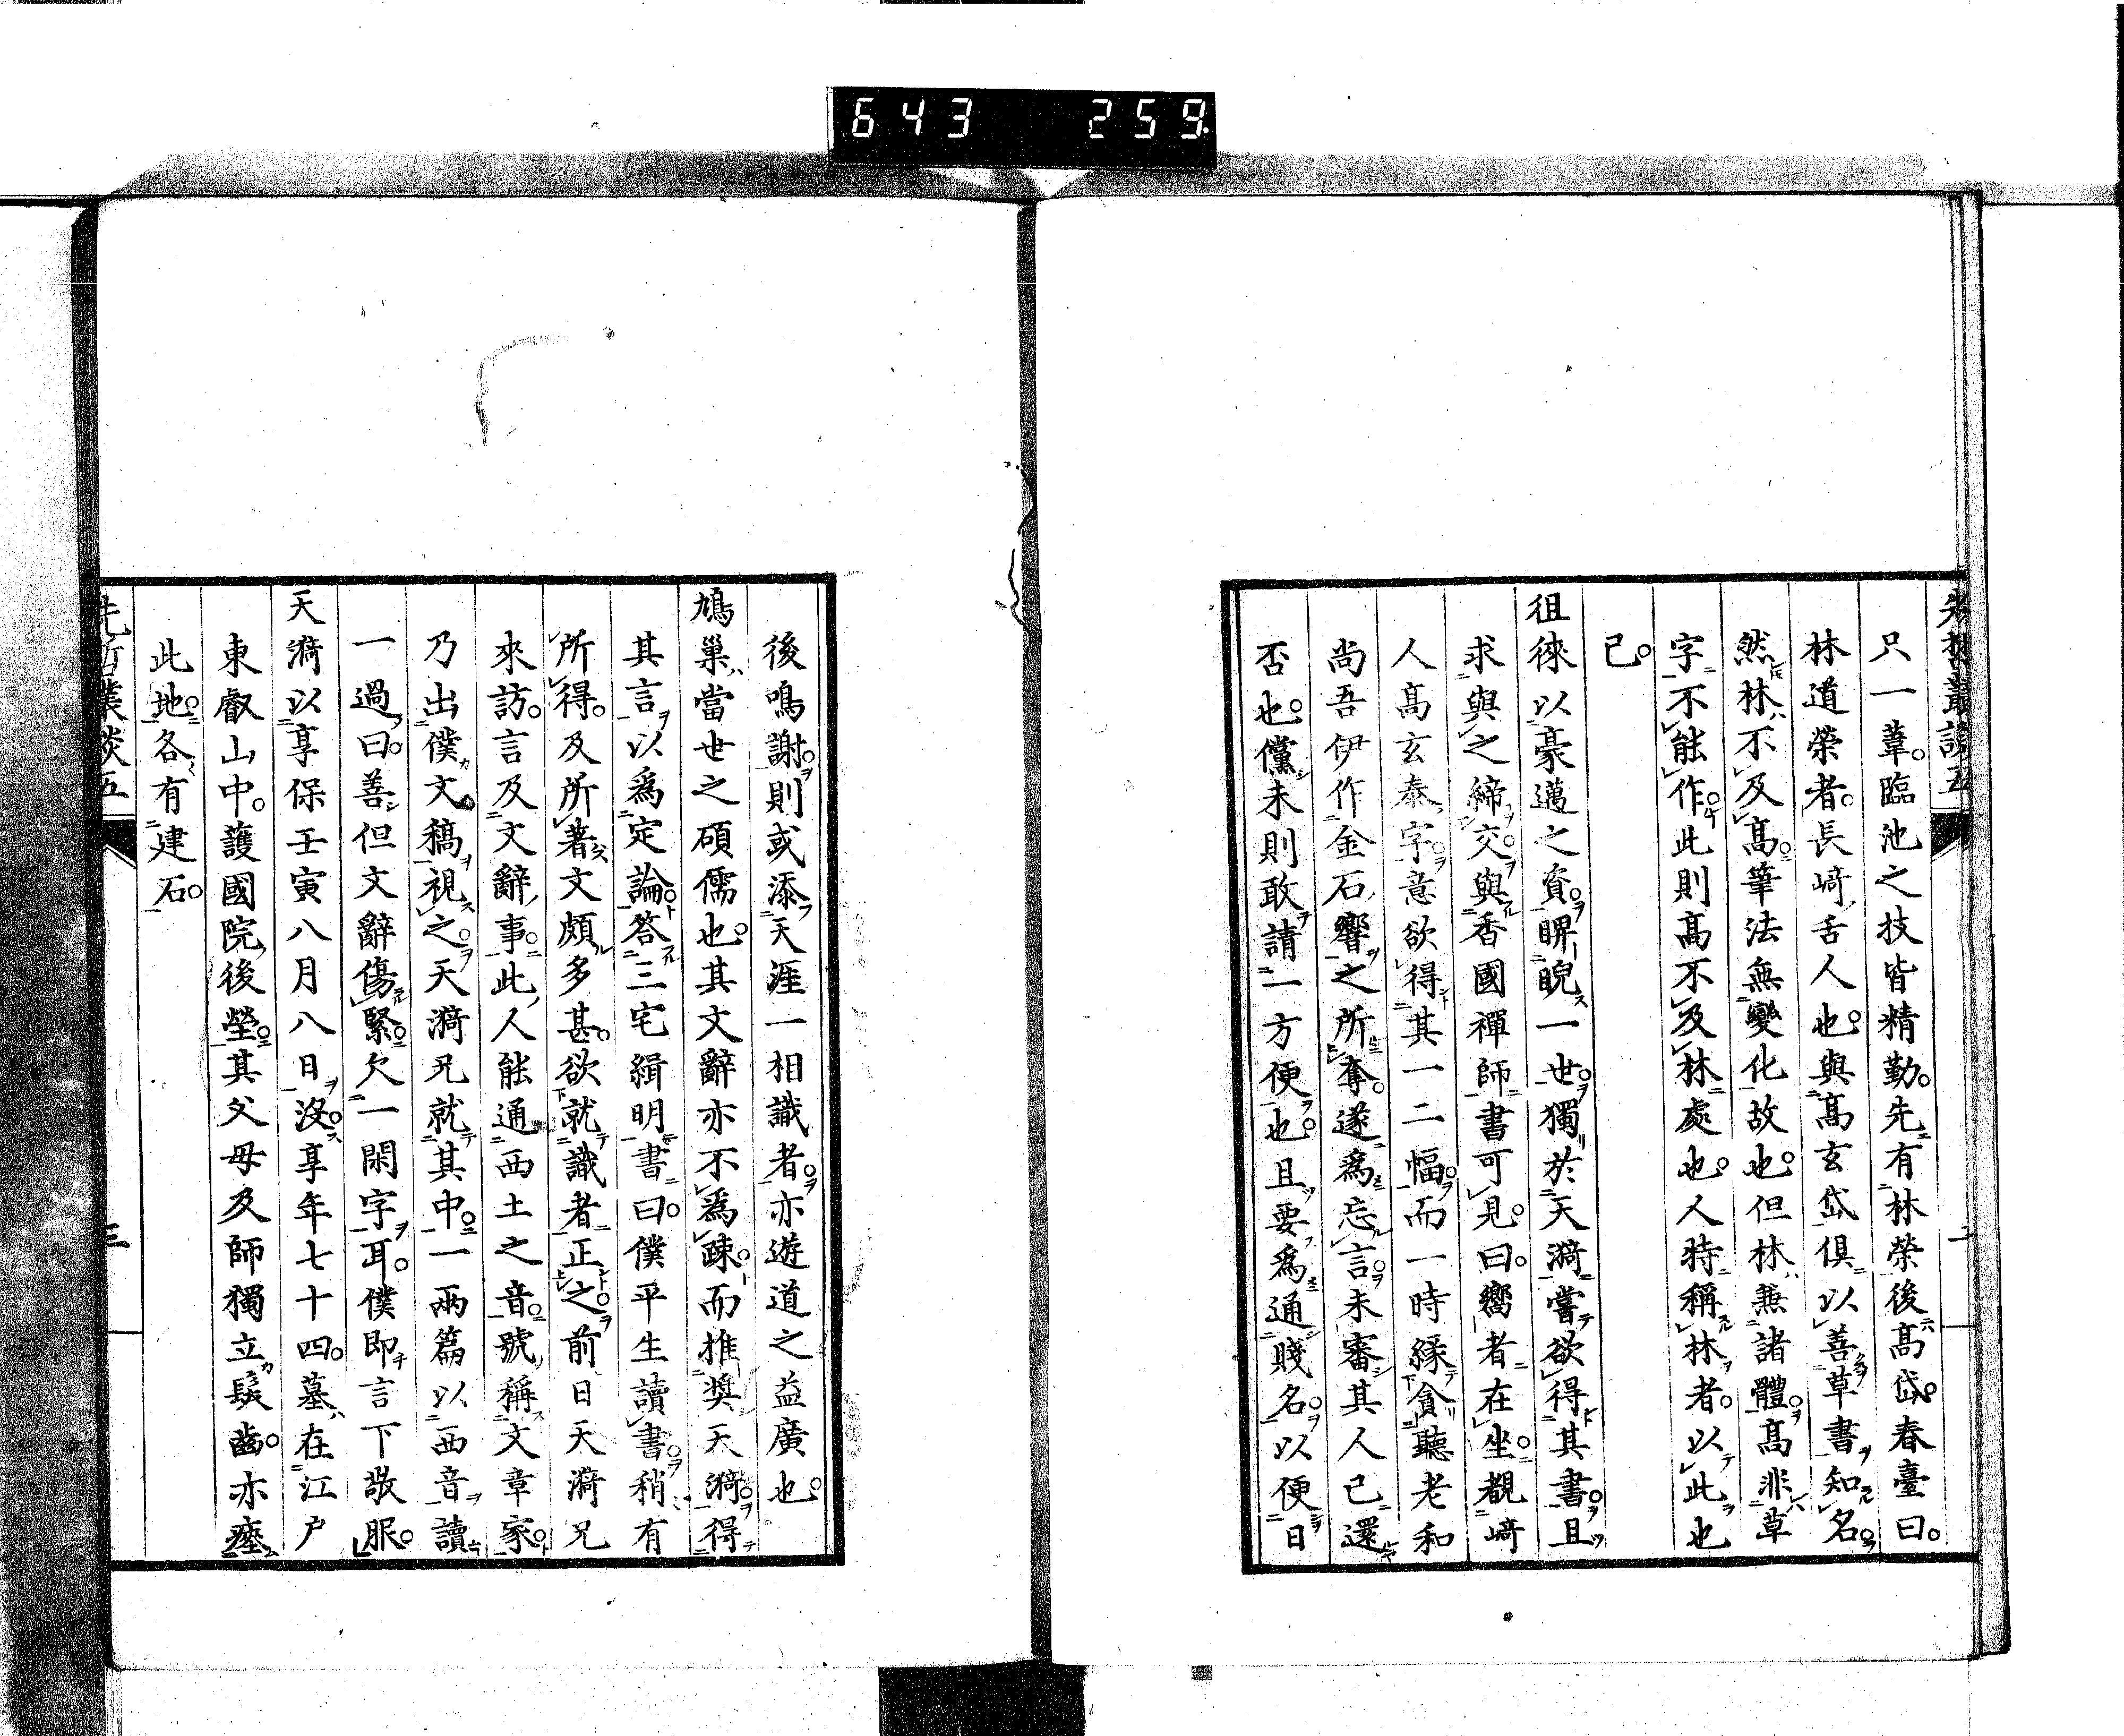 643 259
先哲叢談五
二
只一葦。臨池之技皆精勤。先有林榮後髙岱。春臺曰。
林道榮者。長﨑舌人也。與髙玄岱俱以善草書知名。
然林不及髙。筆法無變化故也。但林兼諸體。髙非草
字不能作。此則髙不及林處也。人特稱林者。以此也
已。
徂徠以豪邁之資。睥睨一世。獨於天漪嘗欲得其書。且
求與之締交。與香國禪師書可見。曰。嚮者在坐覩﨑
人髙玄泰字。意欲得其一二幅。而一時緣貪聽老和
尚吾伊作金石響之所奪。遂爲忘言。未審其人已還
否也。儻未則敢請一方便也。且要爲通賤名。以便日
後鳴謝。則或添天涯一相識者。亦遊道之益廣也。
鳩巢當世之碩儒也。其文辭亦不爲疎。而推奬天漪得
其言以爲定論。答三宅緝明書曰。僕平生讀書。稍有
所得。及所著文頗多甚。欲就識者正之。前日天漪兄
來訪。言及文辭事。此人能通西土之音。號稱文章家。
乃出僕文稿視之。天漪兄就其中一兩篇以西音讀
一過。曰。善。但文辭傷緊。欠一閑字耳。僕即言下敬服。
天漪以享保壬寅八月八日沒。享年七十四。墓在江戶
東叡山中。護國院後塋。其父母及師獨立髮齒。亦瘞
此地。各有建石。
先哲叢談五
三